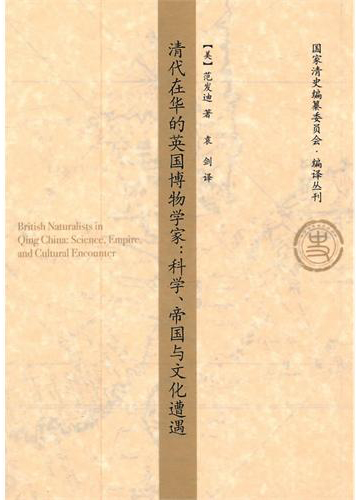 国家清史编纂委员会·编译丛刊
【美】范发迪 著 袁剑 译
清代在华的英国博物学家：科学、帝国与文化遭遇
British Naturalists in
Qing China: Science, Empire,
and Cultural Encounter
史